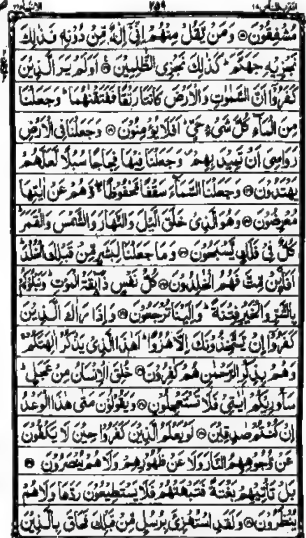 مُشْفِقُوْنَ ۝ وَمَنْ يَّقُلْ مِنْهُمْ اِنِّيْٓ اِلٰهٌ مِّنْ دُوْنِهٖ فَذٰلِكَ
نَجْزِيْهِ جَهَنَّمَ ؕ كَذٰلِكَ نَجْزِي الظّٰلِمِيْنَ ۝ اَوَلَمْ يَرَ الَّذِيْنَ
كَفَرُوْٓا اَنَّ السَّمٰوٰتِ وَالْاَرْضَ كَانَتَا رَتْقًا فَفَتَقْنٰهُمَا ؕ وَجَعَلْنَا
مِنَ الْمَآءِ كُلَّ شَيْءٍ حَيٍّ ؕ اَفَلَا يُؤْمِنُوْنَ ۝ وَجَعَلْنَا فِي الْاَرْضِ
رَوَاسِيَ اَنْ تَمِيْدَ بِهِمْ ۪ وَجَعَلْنَا فِيْهَا فِجَاجًا سُبُلًا لَّعَلَّهُمْ
يَهْتَدُوْنَ ۝ وَجَعَلْنَا السَّمَآءَ سَقْفًا مَّحْفُوْظًا ۚ وَّهُمْ عَنْ اٰيٰتِهَا
مُعْرِضُوْنَ ۝ وَهُوَ الَّذِيْ خَلَقَ الَّيْلَ وَالنَّهَارَ وَالشَّمْسَ وَالْقَمَرَ ؕ
كُلٌّ فِيْ فَلَكٍ يَّسْبَحُوْنَ ۝ وَمَا جَعَلْنَا لِبَشَرٍ مِّنْ قَبْلِكَ الْخُلْدَ ؕ
اَفَا۟ئِنْ مِّتَّ فَهُمُ الْخٰلِدُوْنَ ۝ كُلُّ نَفْسٍ ذَآئِقَةُ الْمَوْتِ ؕ وَنَبْلُوْكُمْ
بِالشَّرِّ وَالْخَيْرِ فِتْنَةً ؕ وَاِلَيْنَا تُرْجَعُوْنَ ۝ وَاِذَا رَاٰكَ الَّذِيْنَ
كَفَرُوْٓا اِنْ يَّتَّخِذُوْنَكَ اِلَّا هُزُوًا ؕ اَهٰذَا الَّذِيْ يَذْكُرُ اٰلِهَتَكُمْ ۚ
وَهُمْ بِذِكْرِ الرَّحْمٰنِ هُمْ كٰفِرُوْنَ ۝ خُلِقَ الْاِنْسَانُ مِنْ عَجَلٍ ؕ
سَاُورِيْكُمْ اٰيٰتِيْ فَلَا تَسْتَعْجِلُوْنِ ۝ وَيَقُوْلُوْنَ مَتٰى هٰذَا الْوَعْدُ
اِنْ كُنْتُمْ صٰدِقِيْنَ ۝ لَوْ يَعْلَمُ الَّذِيْنَ كَفَرُوْا حِيْنَ لَا يَكُفُّوْنَ
عَنْ وُّجُوْهِهِمُ النَّارَ وَلَا عَنْ ظُهُوْرِهِمْ وَلَا هُمْ يُنْصَرُوْنَ ۝
بَلْ تَاْتِيْهِمْ بَغْتَةً فَتَبْهَتُهُمْ فَلَا يَسْتَطِيْعُوْنَ رَدَّهَا وَلَا هُمْ
يُنْظَرُوْنَ ۝ وَلَقَدِ اسْتُهْزِئَ بِرُسُلٍ مِّنْ قَبْلِكَ فَحَاقَ بِالَّذِيْنَ